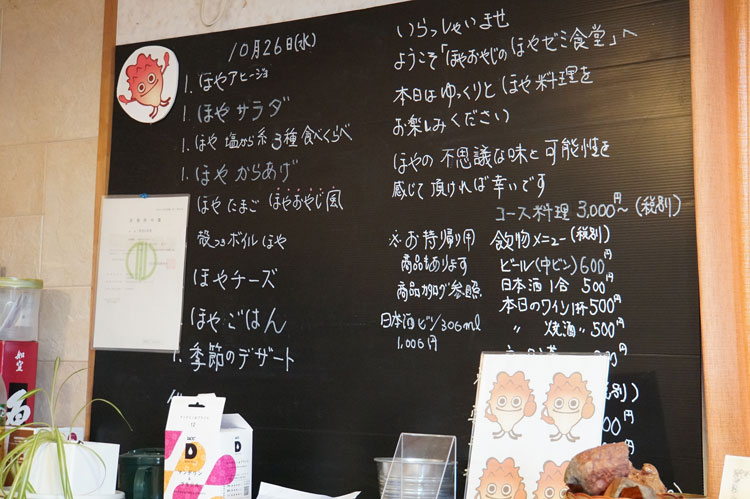 10月26日(水)
1. ほやアヒージョ
1. ほや サラダ
1. ほや 塩から系 3種 食べくらべ
1. ほや からあげ
ほや たまご ほやおやじ風
殻つきボイル ほや
ほやチーズ
ほや ごはん
1. 季節のデザート
いらっしゃいませ
ようこそ「ほやおやじの ほやゼミ食堂」へ
本日は ゆっくりと ほや料理を
お楽しみください
ほやの 不思議な味と 可能性を
感じて 頂ければ 幸いです
コース料理 3,000円〜 (税別)
※お持帰り用
商品もあります
商品カタログ参照
日本酒ビン/306ml
1,006円
飲物メニュー (税別)
ビール(中ビン) 600円
日本酒 1合 500円
本日のワイン1杯 500円
〃 焼酎 〃 500円
税別)
円
D
D